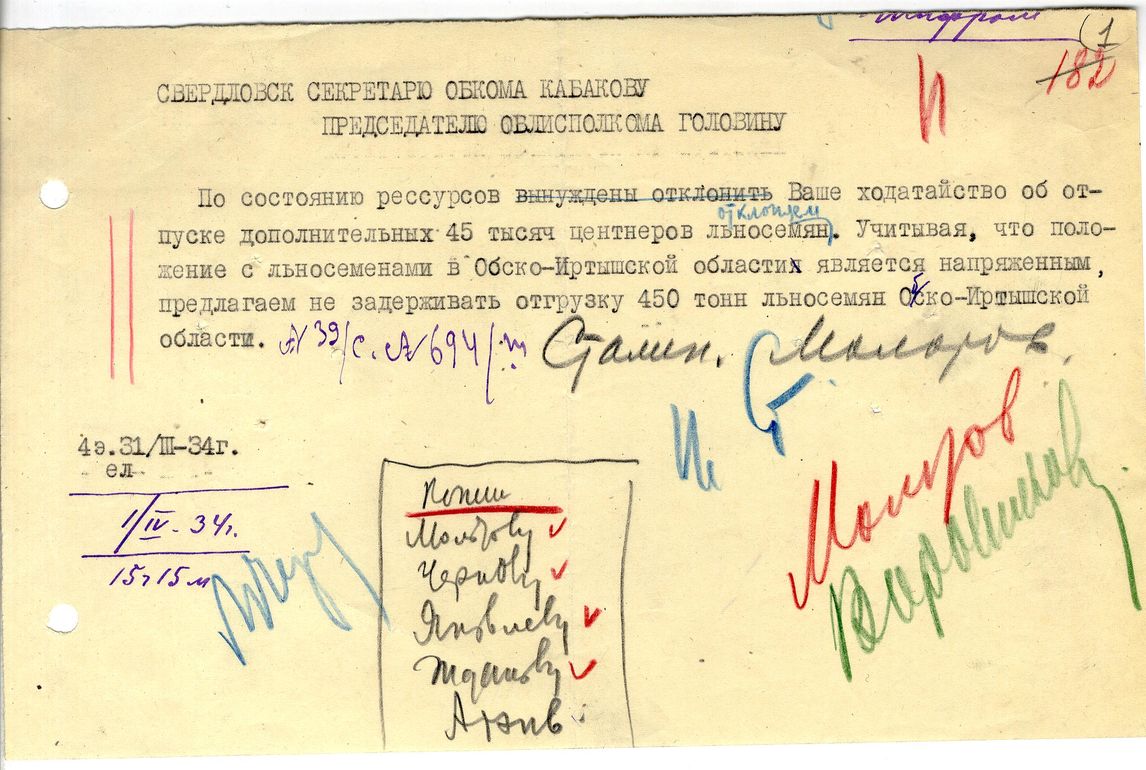 Шифром
(1
182
СВЕРДЛОВСК СЕКРЕТАРЮ ОБКОМА КАБАКОВУ
ПРЕДСЕДАТЕЛЮ ОБЛИСПОЛКОМА ГОЛОВИНУ
По состоянию рессурсов вынуждены отклонить Ваше ходатайство об от-
отклоняем
пуске дополнительных 45 тысяч центнеров льносемян. Учитывая, что поло-
жение с льносеменами в Обско-Иртышской области является напряженным,
предлагаем не задерживать отгрузку 450 тонн льносемян Обско-Иртышской
области. № 39/с. № 694/ш Сталин. Молотов.
4э.31/III-34г.
ел
1/IV-34г.
15ч15м
Копии
Молотову
Чернову
Яковлеву
Жданову
Архив
Молотов
Ворошилов